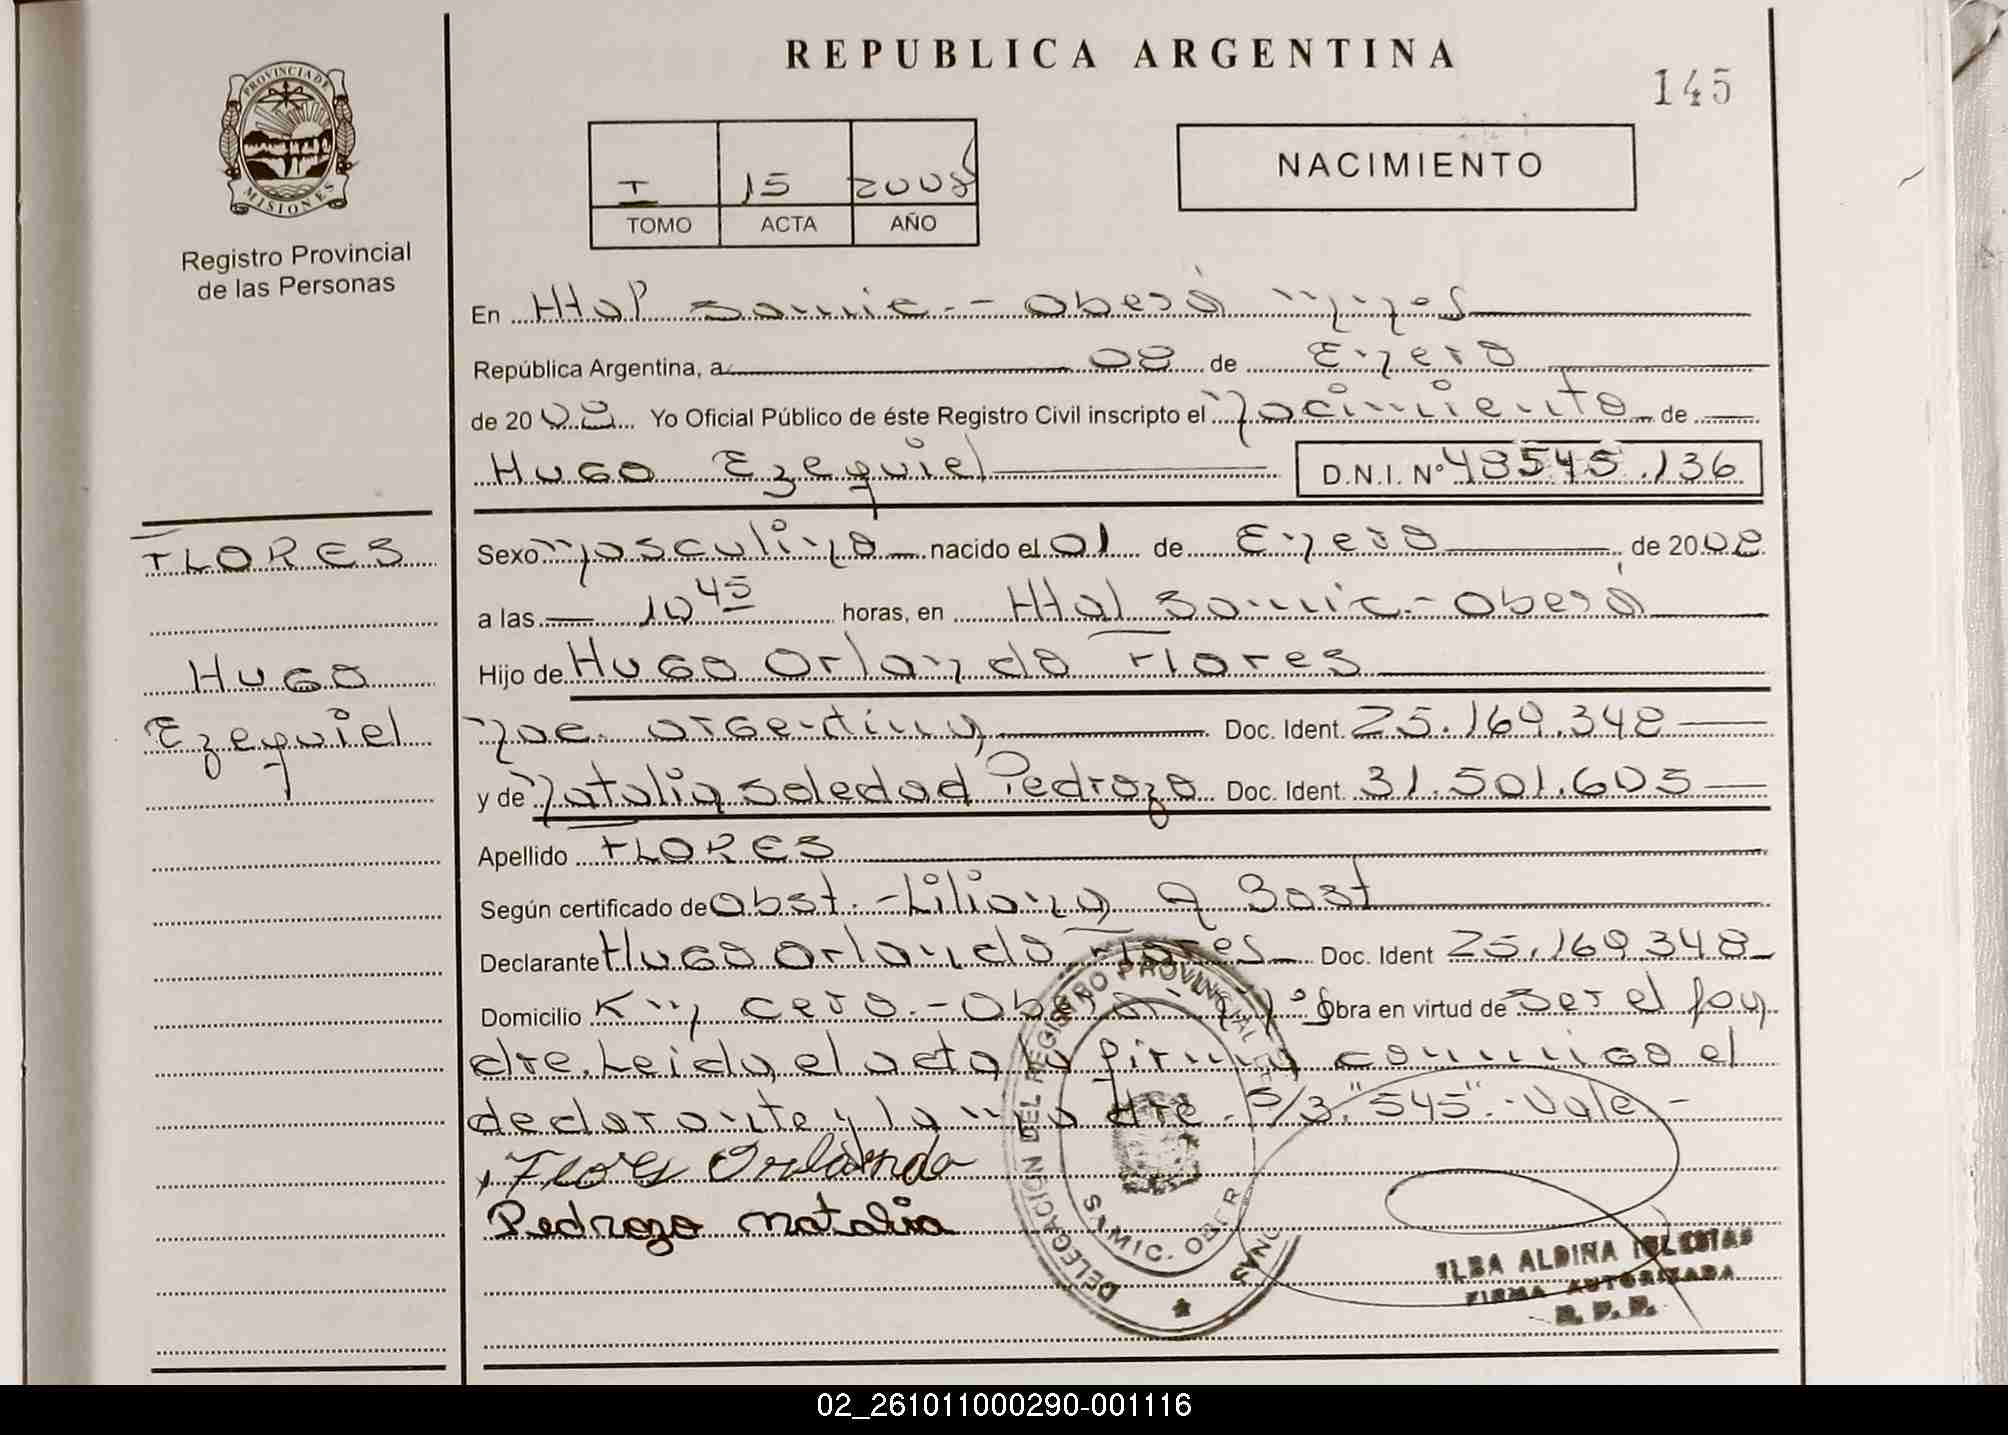 REPUBLICA ARGENTINA
145
PROVINCIA DE
MISIONES
Registro Provincial
de las Personas
I 15 2008
TOMO ACTA AÑO
NACIMIENTO
En Htal Samic.- Oberá Mnes
República Argentina, a 08 de Enero
de 2008 Yo Oficial Público de éste Registro Civil inscripto el Nacimiento de
Hugo Ezequiel D.N.I. Nº 48545.136
FLORES
Hugo
Ezequiel
Sexo Masculino nacido el 01 de Enero de 2008
a las 10 45 horas, en Htal Samic.- Oberá
Hijo de Hugo Orlando Flores
Nac. argentina Doc. Ident. 25.169.348
y de Natalia Soledad Pedrozo Doc. Ident. 31.501.605
Apellido FLORES
Según certificado de Obst.- Liliana A Bast
Declarante Hugo Orlando Flores Doc. Ident 25.169.348
Domicilio Km cero.- Oberá Obra en virtud de ser el pa
dre. Leida el acta la firma conmigo el
declarante y la madre. S/B. "545".- Vale.-
Flores Orlando
Pedrozo Natalia
DELEGACION DEL REGISTRO PROVINCIAL DE
SAMIC. OBERA
ELBA ALDINA IGLESIAS
FIRMA AUTORIZADA
R. P. P.
02_261011000290-001116